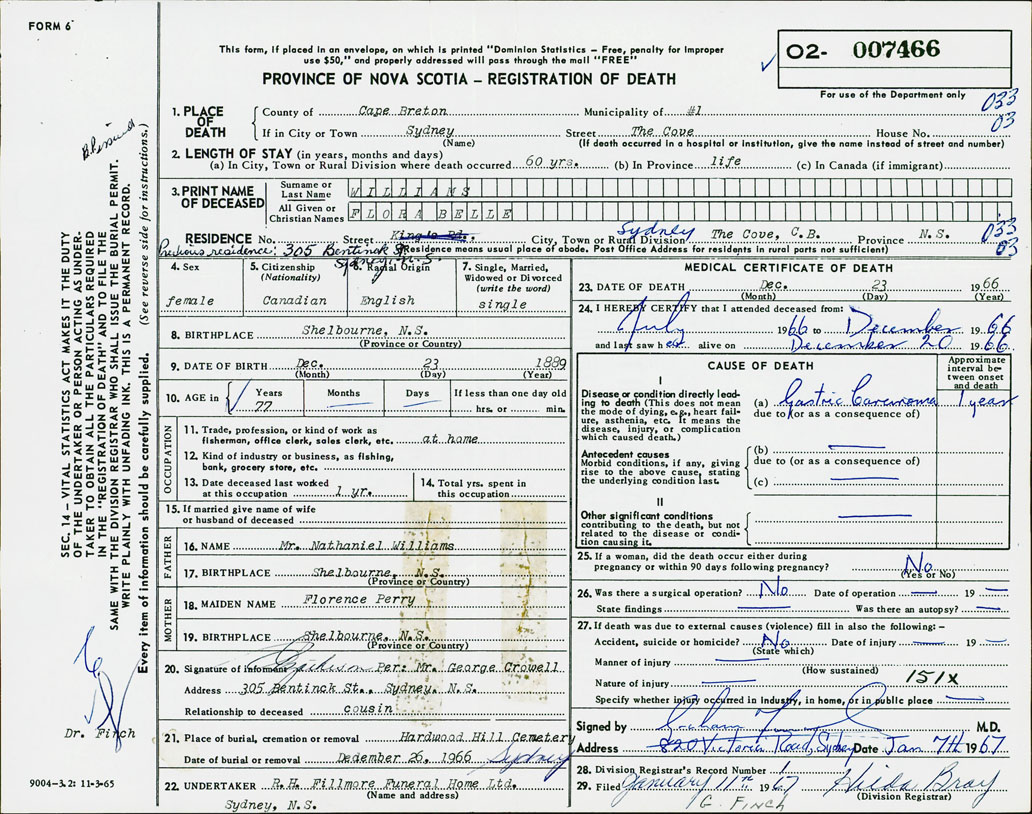 FORM 6
This form, if placed in an envelope, on which is printed "Dominion Statistics – Free, penalty for improper
use $50," and properly addressed will pass through the mail "FREE"
PROVINCE OF NOVA SCOTIA – REGISTRATION OF DEATH
02- 007466
For use of the Department only
033
03
1. PLACE OF DEATH
County of Cape Breton Municipality of #1
If in City or Town Sydney Street The Cove House No.
(Name) (If death occurred in a hospital or institution, give the name instead of street and number)
2. LENGTH OF STAY (in years, months and days)
(a) In City, Town or Rural Division where death occurred 60 yrs. (b) In Province life (c) In Canada (if immigrant)
3. PRINT NAME OF DECEASED
Surname or Last Name WILLIAMS
All Given or Christian Names FLORA BELLE
RESIDENCE No. Street King's Rd. City, Town or Rural Division Sydney The Cove, C.B. Province N.S.
033
03
Previous residence: 305 Bentinck St
Sydney, N.S.
(Residence means usual place of abode. Post Office Address for residents in rural parts not sufficient)
4. Sex
female
5. Citizenship
(Nationality)
Canadian
6. Racial Origin
English
7. Single, Married,
Widowed or Divorced
(write the word)
single
8. BIRTHPLACE Shelbourne, N.S.
(Province or Country)
9. DATE OF BIRTH Dec. 23 1889
(Month) (Day) (Year)
10. AGE in
Years
77
Months
Days
If less than one day old
hrs. or min.
OCCUPATION
11. Trade, profession, or kind of work as
fisherman, office clerk, sales clerk, etc. at home
12. Kind of industry or business, as fishing,
bank, grocery store, etc.
13. Date deceased last worked
at this occupation 1 yr.
14. Total yrs. spent in
this occupation
15. If married give name of wife
or husband of deceased
FATHER
16. NAME Mr. Nathaniel Williams
17. BIRTHPLACE Shelbourne, N.S.
(Province or Country)
MOTHER
18. MAIDEN NAME Florence Perry
19. BIRTHPLACE Shelbourne, N.S.
(Province or Country)
20. Signature of informant Per: Mr. George Crowell
Address 305 Bentinck St., Sydney, N.S.
Relationship to deceased cousin
21. Place of burial, cremation or removal Hardwood Hill Cemetery
Date of burial or removal December 26, 1966 Sydney
22. UNDERTAKER R.H. Fillmore Funeral Home Ltd.
(Name and address)
Sydney, N.S.
MEDICAL CERTIFICATE OF DEATH
23. DATE OF DEATH Dec. 23 1966
(Month) (Day) (Year)
24. I HEREBY CERTIFY that I attended deceased from:
July 1966 to December 1966
and last saw her alive on December 20 1966.
CAUSE OF DEATH
Approximate
interval be-
tween onset
and death
I
Disease or condition directly lead-
ing to death (This does not mean
the mode of dying, e.g., heart fail-
ure, asthenia, etc. It means the
disease, injury, or complication
which caused death.)
(a) Gastric Carcinoma 1 year
due to (or as a consequence of)
Antecedent causes
Morbid conditions, if any, giving
rise to the above cause, stating
the underlying condition last.
(b)
due to (or as a consequence of)
(c)
II
Other significant conditions
contributing to the death, but not
related to the disease or condi-
tion causing it.
25. If a woman, did the death occur either during
pregnancy or within 90 days following pregnancy? No
(Yes or No)
26. Was there a surgical operation? No Date of operation 19
State findings Was there an autopsy?
27. If death was due to external causes (violence) fill in also the following: –
Accident, suicide or homicide? No Date of injury 19
(State which)
Manner of injury
(How sustained)
Nature of injury 151X
Specify whether injury occurred in industry, in home, or in public place
Signed by M.D.
Address 820 Victoria Road, Sydney Date Jan 7th 1967
28. Division Registrar's Record Number
29. Filed January 11th 1967 Hilda Bray
(Division Registrar)
G. FINCH
SEC. 14 – VITAL STATISTICS ACT MAKES IT THE DUTY
OF THE UNDERTAKER OR PERSON ACTING AS UNDER-
TAKER TO OBTAIN ALL THE PARTICULARS REQUIRED
IN THE "REGISTRATION OF DEATH" AND TO FILE THE
SAME WITH THE DIVISION REGISTRAR WHO SHALL ISSUE THE BURIAL PERMIT.
WRITE PLAINLY WITH UNFADING INK. THIS IS A PERMANENT RECORD.
Every item of information should be carefully supplied. (See reverse side for instructions.)
Dr. Finch
9004-3.2: 11-3-65